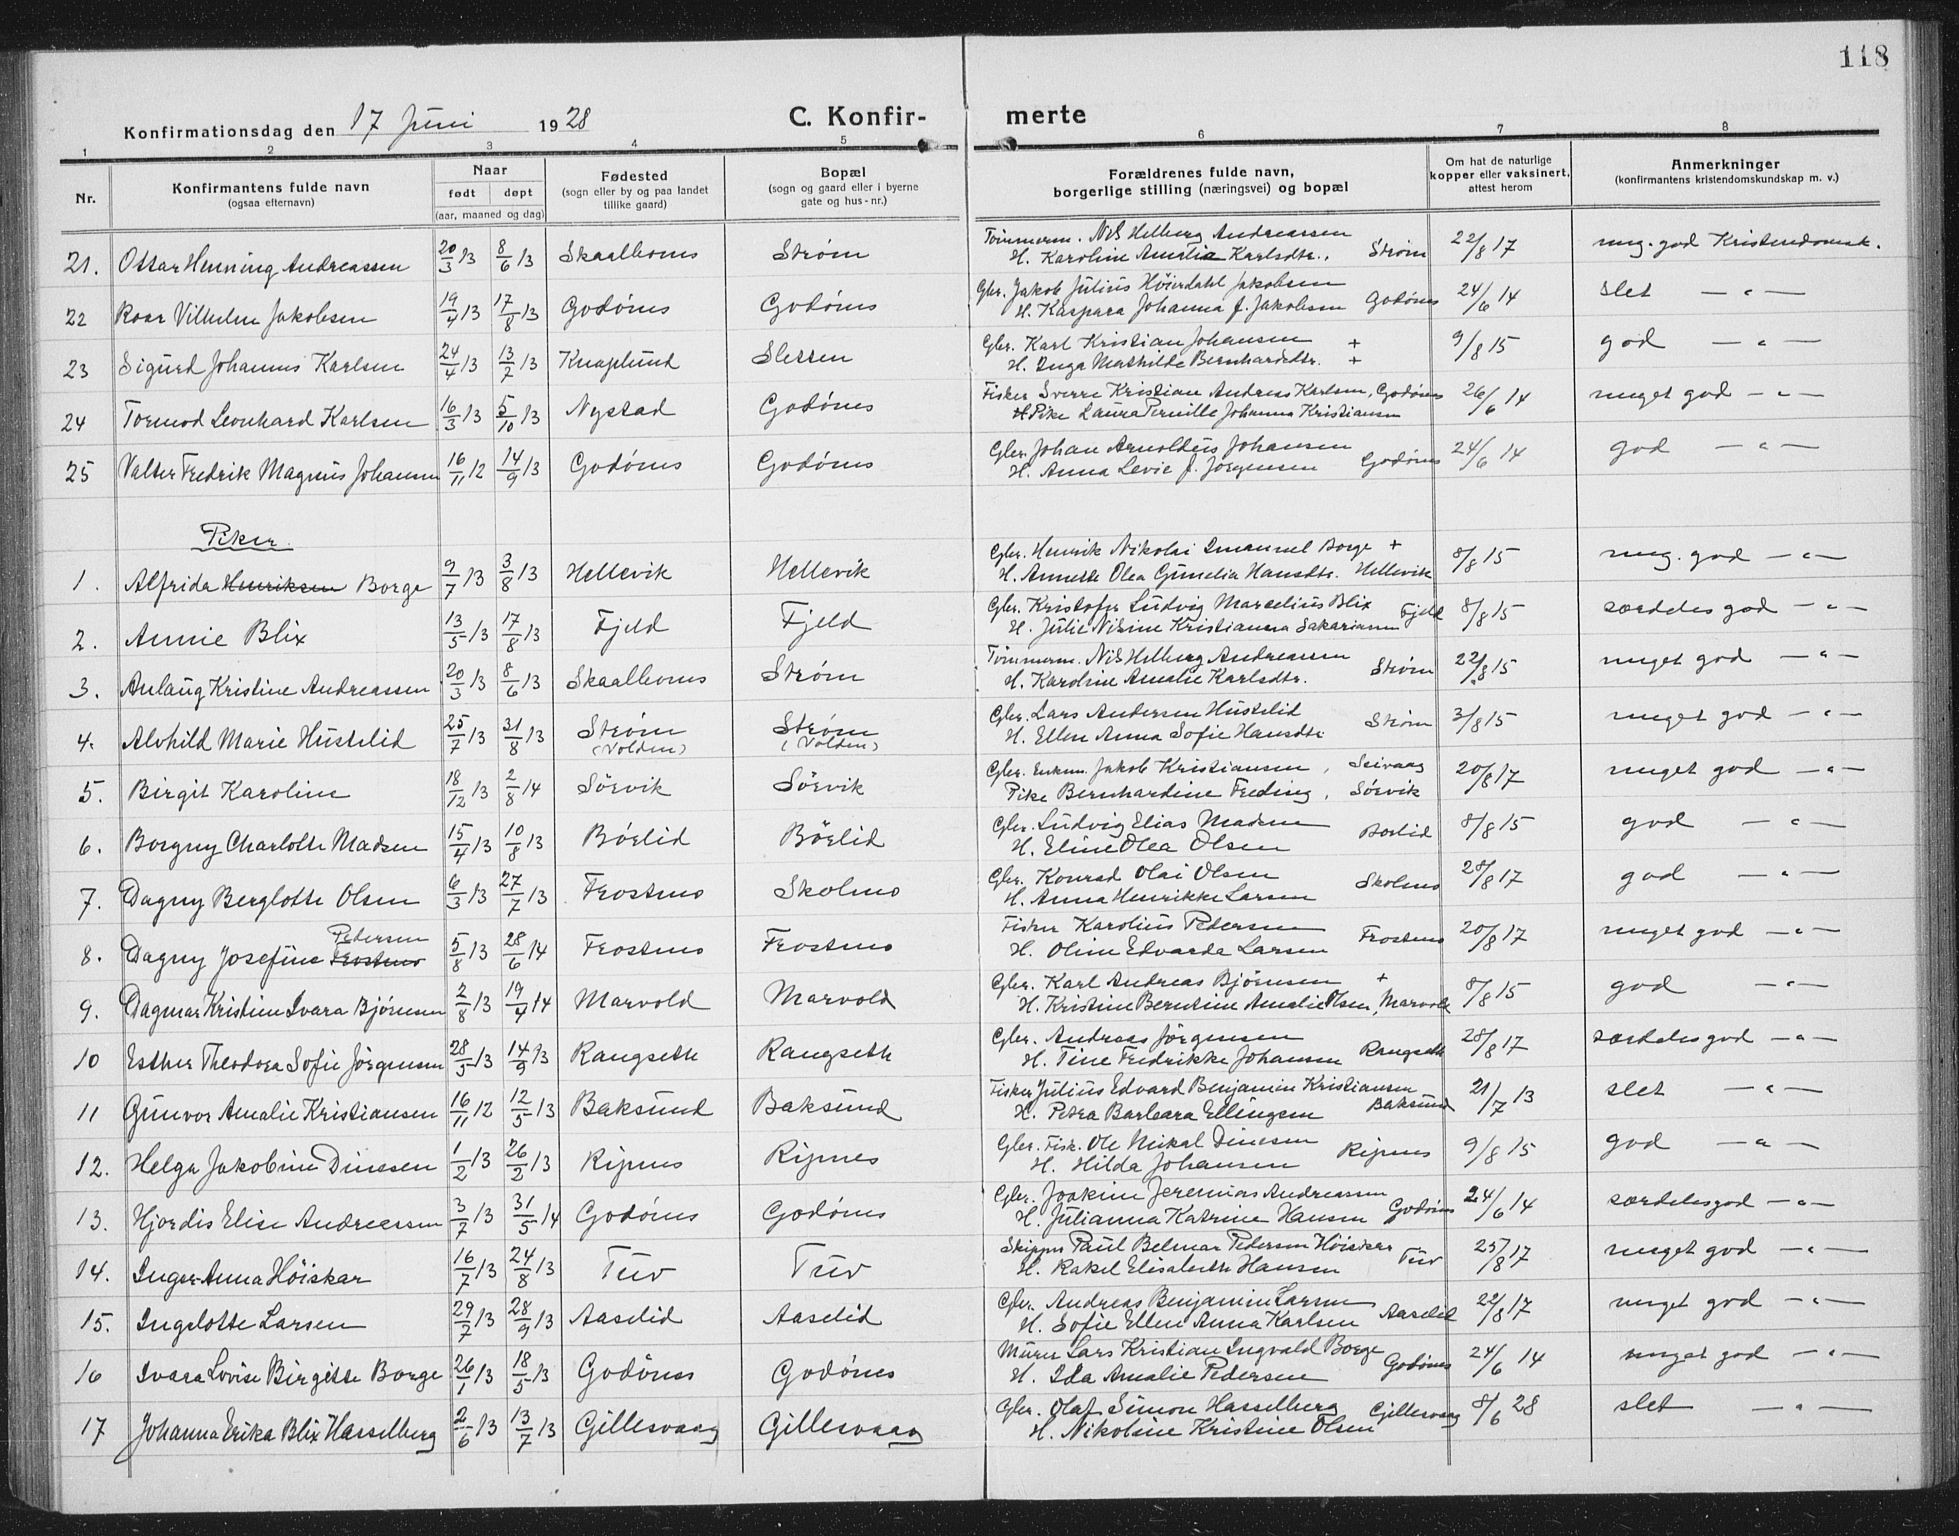 118
Konfirmationsdag den 17 Juni 1928
C. Konfir-
merte
1 2 3 4 5 6 7 8
Nr.
Konfirmantens fulde navn
(ogsaa efternavn)
Naar
født døpt
(aar, maaned og dag)
Fødested
(sogn eller by og paa landet
tillike gaard)
Bopæl
(sogn og gaard eller i byerne
gate og hus-nr.)
Forældrenes fulde navn,
borgerlige stilling (næringsvei) og bopæl
Om hat de naturlige
kopper eller vaksinert,
attest herom
Anmerkninger
(konfirmantens kristendomskundskap m. v.)
21. Ottar Henning Andreassen 20/3 13 8/6 13 Skaalhoms Strøm Tømmerm. Nils Helberg Andreassen 22/8 17 meg. god Kristendomsk.
H. Karoline Amalie Karlsdtr., Strøm
22 Roar Vilhelm Jakobsen 19/4 13 17/8 13 Godønes Godønes Gbr. Jakob Julius Høierdahl Jakobsen 24/6 14 slet — " —
H. Kaspara Johanna f. Jakobsen Godønes
23 Sigurd Johannes Karlsen 24/4 13 13/7 13 Knaplund Sletten Gbr. Karl Kristian Johansen + 9/8 15 god — " —
H. Inga Mathilde Bernhardsdtr. +
24 Tormod Leonhard Karlsen 16/3 13 5/10 13 Nystad Godønes Fisker Sverre Kristian Andreas Karlsen, Godønes 26/6 14 meget god — " —
Pike Laura Pernille Johanna Kristiansen
25 Valter Fredrik Magnus Johansen 16/11 12 14/9 13 Godønes Godønes Gbr. Johan Arnoldus Johansen 24/6 14 god — " —
H. Anna Levie f. Jørgensen Godønes
Piker
1. Alfrida Henriksen Borge 9/7 13 3/8 13 Hellevik Hellevik Gbr. Henrik Nikolai Emanuel Borge + 8/8 15 meg. god — " —
H. Annette Olea Gunelia Hansdtr. Hellevik
2. Annie Blix 13/5 13 17/8 13 Fjeld Fjeld Gbr. Kristofer Ludvig Marselius Blix Fjeld 8/8 15 særdeles god — " —
H. Julie Nisine Kristianna Sakariasen
3. Aslaug Kristine Andreassen 20/3 13 8/6 13 Skaalhoms Strøm Tømmerm. Nils Helberg Andreassen 22/8 15 meget god — " —
H. Karoline Amalie Karlsdtr. Strøm
4. Alvhild Marie Hustelid 25/7 13 31/8 13 Strøm Strøm Gbr. Lars Andersen Hustelid 3/8 15 meget god — " —
(Volden) (Volden) H. Ellen Anna Sofie Hansdtr Strøm
5. Birgit Karoline 18/12 13 2/8 14 Sørvik Sørvik Gbr. Enkm. Jakob Kristiansen, Seivaag 20/8 17 meget god — " —
Pike Bernhardine Freding, Sørvik
6. Borgny Charlotte Madsen 15/4 13 10/8 13 Børlid Børlid Gbr. Ludvig Elias Madsen 8/8 15 god — " —
H. Eline Olea Olsen Børlid
7. Dagny Berglotte Olsen 6/3 13 27/7 13 Frostmo Skolmo Gbr. Konrad Olai Olsen 28/8 17 god — " —
H. Anna Henrikke Larsen Skolmo
8. Dagny Josefine Frostmo Pedersen 5/8 13 28/6 14 Frostmo Frostmo Fisker Karolius Pedersen 20/8 17 meget god — " —
H. Oline Edvarda Larsen Frostmo
9. Dagmar Kristine Ivara Bjørnsen 2/8 13 19/4 14 Marvold Marvold Gbr. Karl Andreas Bjørnsen + 8/8 15 god — " —
H. Kristine Berntine Amalie Olsen, Marvold
10 Esther Theodora Sofie Jørgensen 28/5 13 14/9 13 Rangseth Rangseth Gbr. Andreas Jørgensen 28/8 17 særdeles god — " —
H. Tine Fredrikke Johansen Rangseth
11 Gunvor Amalie Kristiansen 16/11 12 12/5 13 Baksund Baksund Fisker Julius Edvard Benjamin Kristiansen 21/7 13 slet — " —
H. Petra Barbara Ellingsen Baksund
12. Helga Jakobine Dinesen 1/2 13 26/2 13 Ripnes Ripnes Gbr. Fisk. Ole Mikal Dinesen 9/8 15 god — " —
H. Hilda Johansen Ripnes
13. Hjordis Elise Andreassen 3/7 13 31/5 14 Godønes Godønes Gbr. Joakim Jeremias Andreassen 24/6 14 særdeles god — " —
H. Julianna Katrine Hansen Godønes
14. Inger Anna Høiskar 16/7 13 24/8 13 Tuv Tuv Skipper Paul Belmar Pedersen Høiskar 25/8 17 meget god — " —
H. Rakel Elisabeth Hansen Tuv
15. Ingelotte Larsen 29/7 13 28/9 13 Aaselid Aaselid Gbr. Andreas Benjamin Larsen 22/8 17 meget god — " —
H. Sofie Ellen Anna Karlsen Aaselid
16 Ivara Lovise Birgitte Borge 26/1 13 18/5 13 Godønes Godønes Murer Lars Kristian Ingvald Borge 24/6 14 meget god — " —
H. Ida Amalie Pedersen Godønes
17 Johanna Erika Blix Hasselberg 2/6 13 13/7 13 Gillesvaag Gillesvaag Gbr. Olaf Simon Hasselberg 8/6 28 slet — " —
H. Nikoline Kristine Olsen Gillesvaag